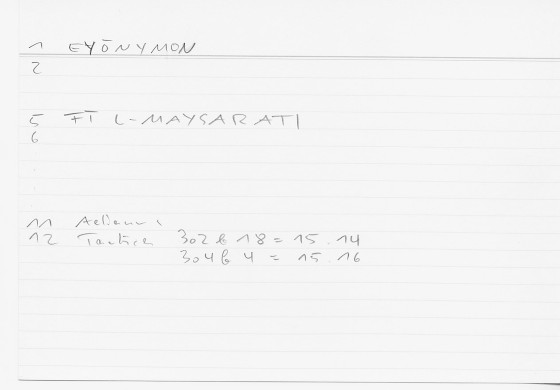 1 EYŌNYMON
2
5 FĪ L-MAYSARATI
6
11 Aelianus
12 Tactica 302 b 18 = 15.14
304 b 4 = 15.16